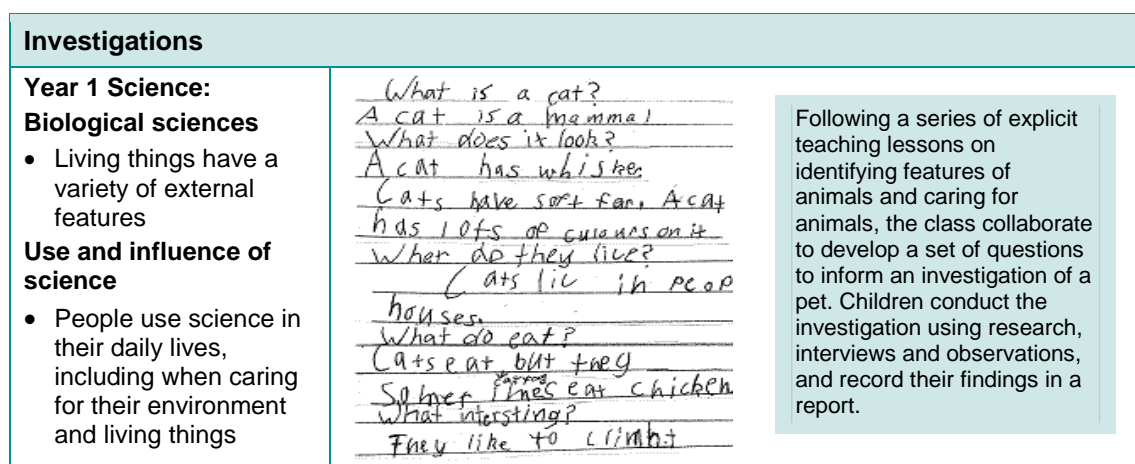 Investigations
Year 1 Science:
Biological sciences
• Living things have a
variety of external
features
Use and influence of
science
• People use science in
their daily lives,
including when caring
for their environment
and living things
What is a cat?
A cat is a mammal
What does it look?
A cat has whisker
Cats have soft far. A cat
has lots of culaurs on it
Wher do they live?
Cats liv in peop
houses.
What do eat?
Cats eat but they
Somer times eat chicken
What intersting?
They like to climbt
Following a series of explicit
teaching lessons on
identifying features of
animals and caring for
animals, the class collaborate
to develop a set of questions
to inform an investigation of a
pet. Children conduct the
investigation using research,
interviews and observations,
and record their findings in a
report.